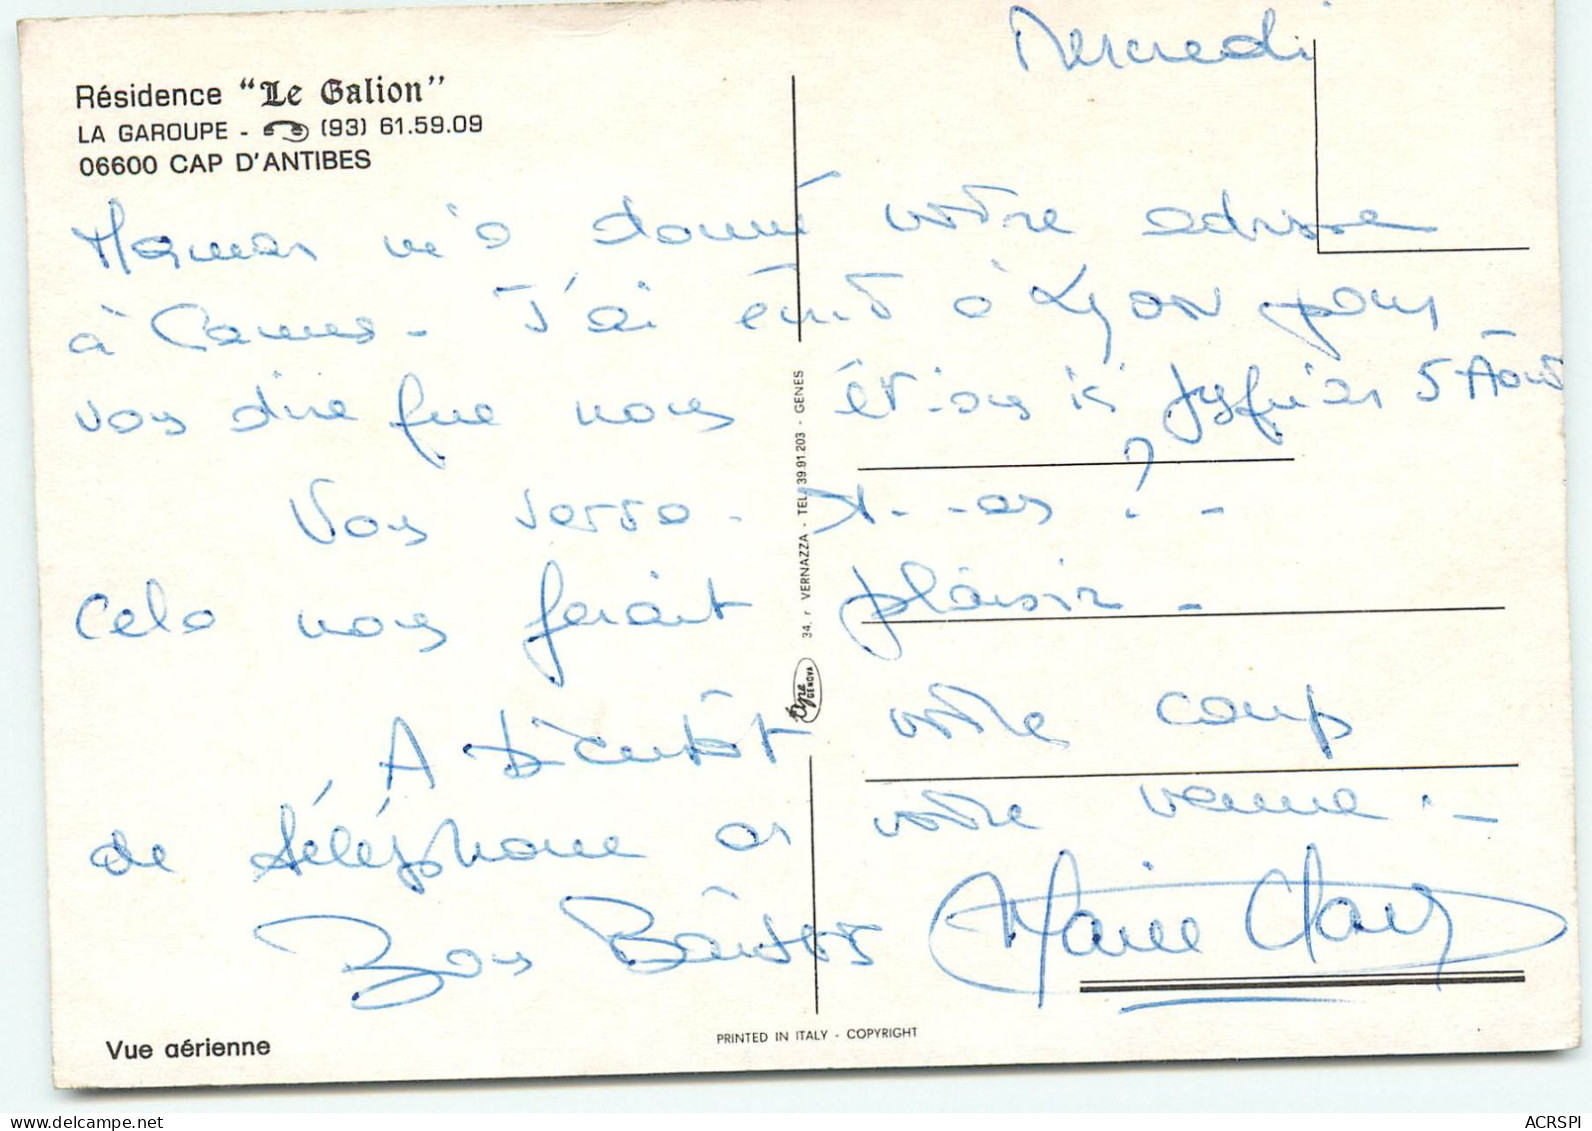 Mercredi
Résidence "Le Galion"
LA GAROUPE - (93) 61.59.09
06600 CAP D'ANTIBES
Maman m'a donné votre adresse
à Cannes - J'ai écrit à Lyon pour
vous dire que nous étions ici jusqu'au 5 Août
Vous verra-t-on ? -
Cela nous ferait plaisir -
A Bientôt votre coup
de téléphone ou votre venue -
Bons Baisers Marie Claire
34, r VERNAZZA - TEL. 39.91.203 - GENES
GENOVA
PRINTED IN ITALY - COPYRIGHT
Vue aérienne
www.delcampe.net
ACRSPI